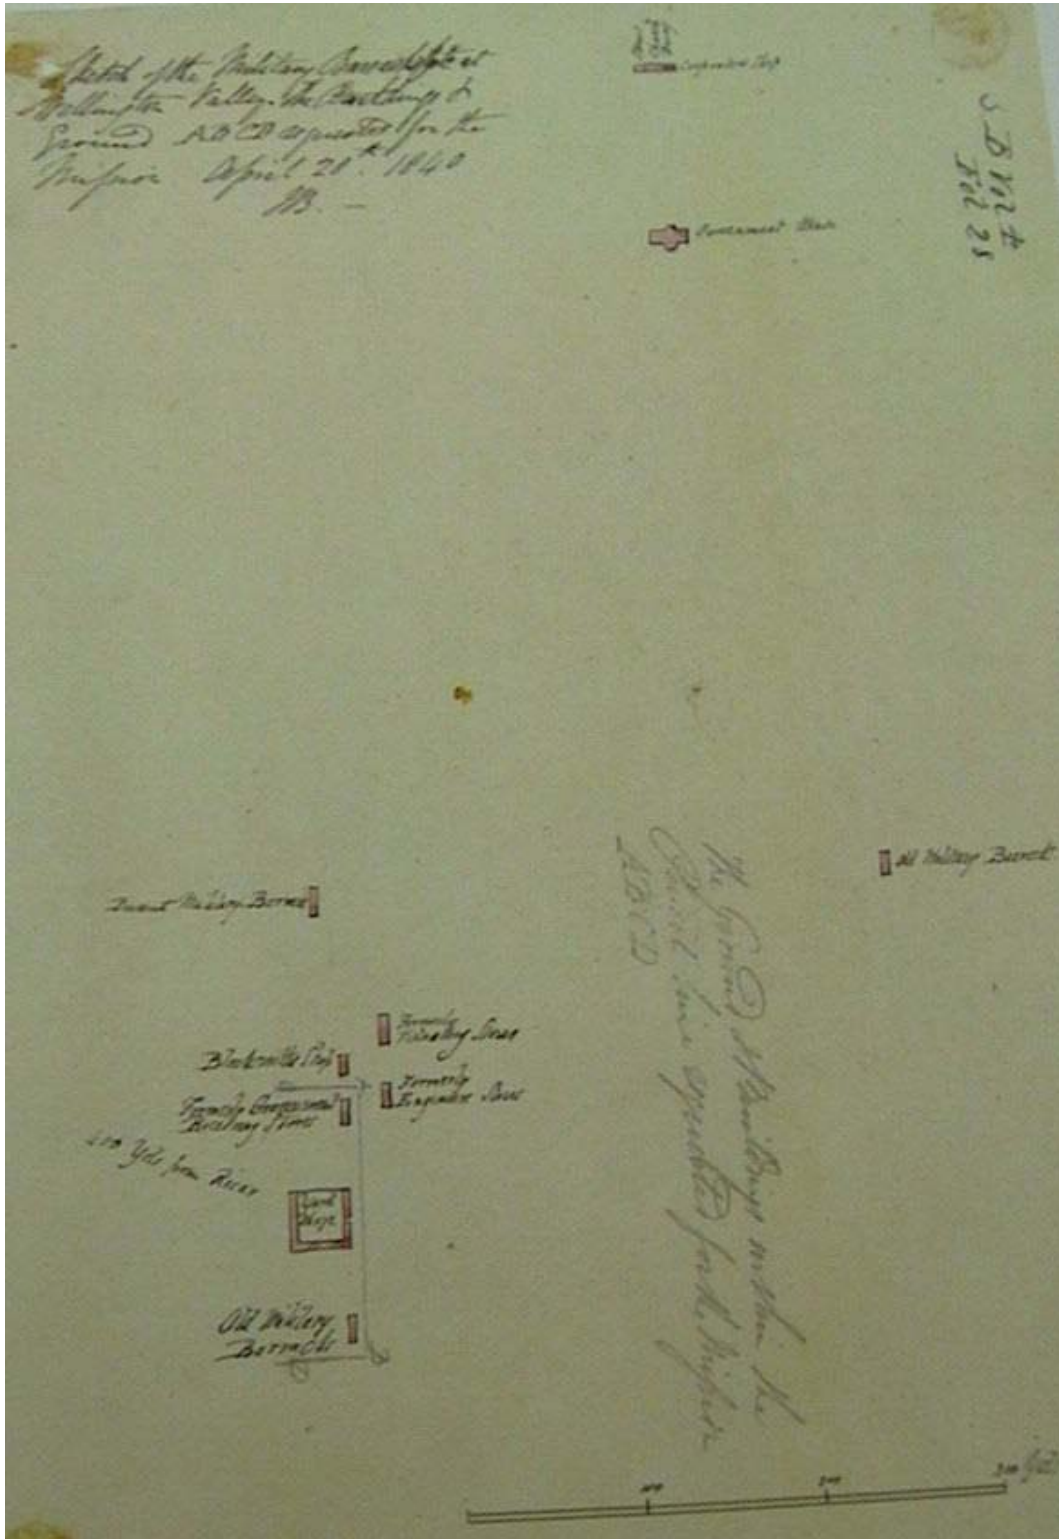 Sketch of the Military Barracks &c at
Wellington Valley. The Buildings &
Ground ABCD requested for the
Mission April 20th. 1840
Carpenters Shop
Government House
Fol 28
Old Military Barrack
Present Military Barrack
Formerly
Blacksmiths Shop
Formerly
Engineers Stores
Formerly Government
Stores
400 Yds from River
Old Military
Barracks
The Ground & Buildings within the
Pencil line requested for the Mission
ABCD
100
200
300 Yds